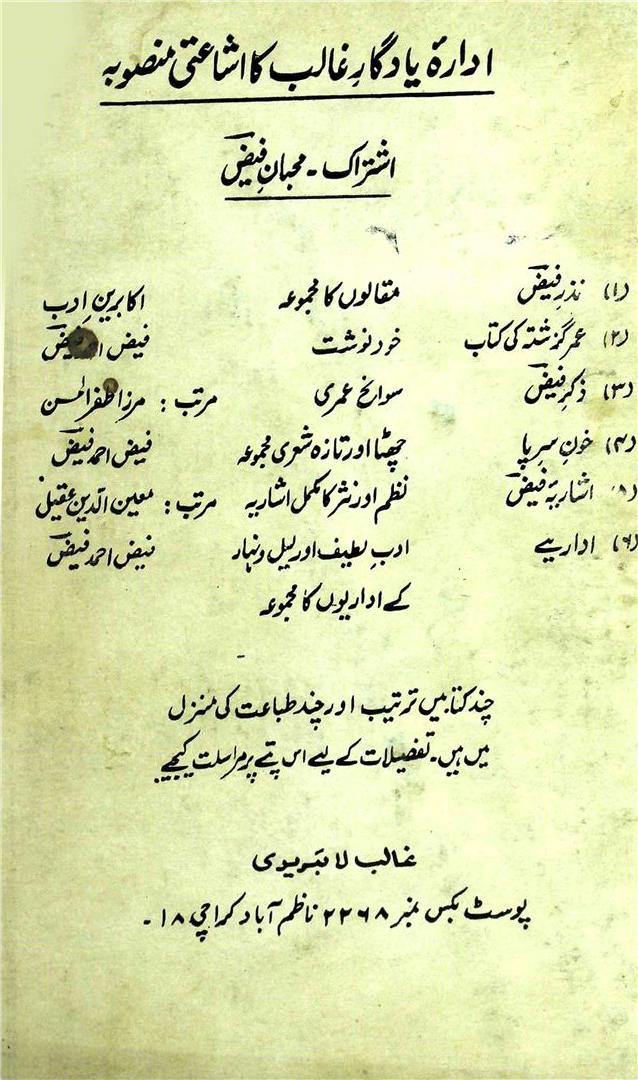 ادارۂ یادگارِ غالب کا اشاعتی منصوبہ
اشتراک - محبانِ فیضؔ
(۱) نذرِ فیضؔ مقالوں کا مجموعہ اکابرینِ ادب
(۲) عمرِ گزشتہ کی کتاب خود نوشت فیض احمد فیضؔ
(۳) ذکرِ فیضؔ سوانح عمری مرتب : مرزا ظفر الحسن
(۴) خونِ سرپا چھٹا اور تازہ شعری مجموعہ فیض احمد فیضؔ
اشاریہ فیضؔ نظم اور نثر کا مکمل اشاریہ مرتب : معین الدین عقیل
(۶) اداریے ادبِ لطیف اور لیل و نہار فیض احمد فیضؔ
کے اداریوں کا مجموعہ
چند کتابیں ترتیب اور چند طباعت کی منزل
میں ہیں۔ تفصیلات کے لیے اس پتے پر مراسلت کیجیے
غالب لائبریری
پوسٹ بکس نمبر ۲۲۶۸ ناظم آباد کراچی ۱۸۔